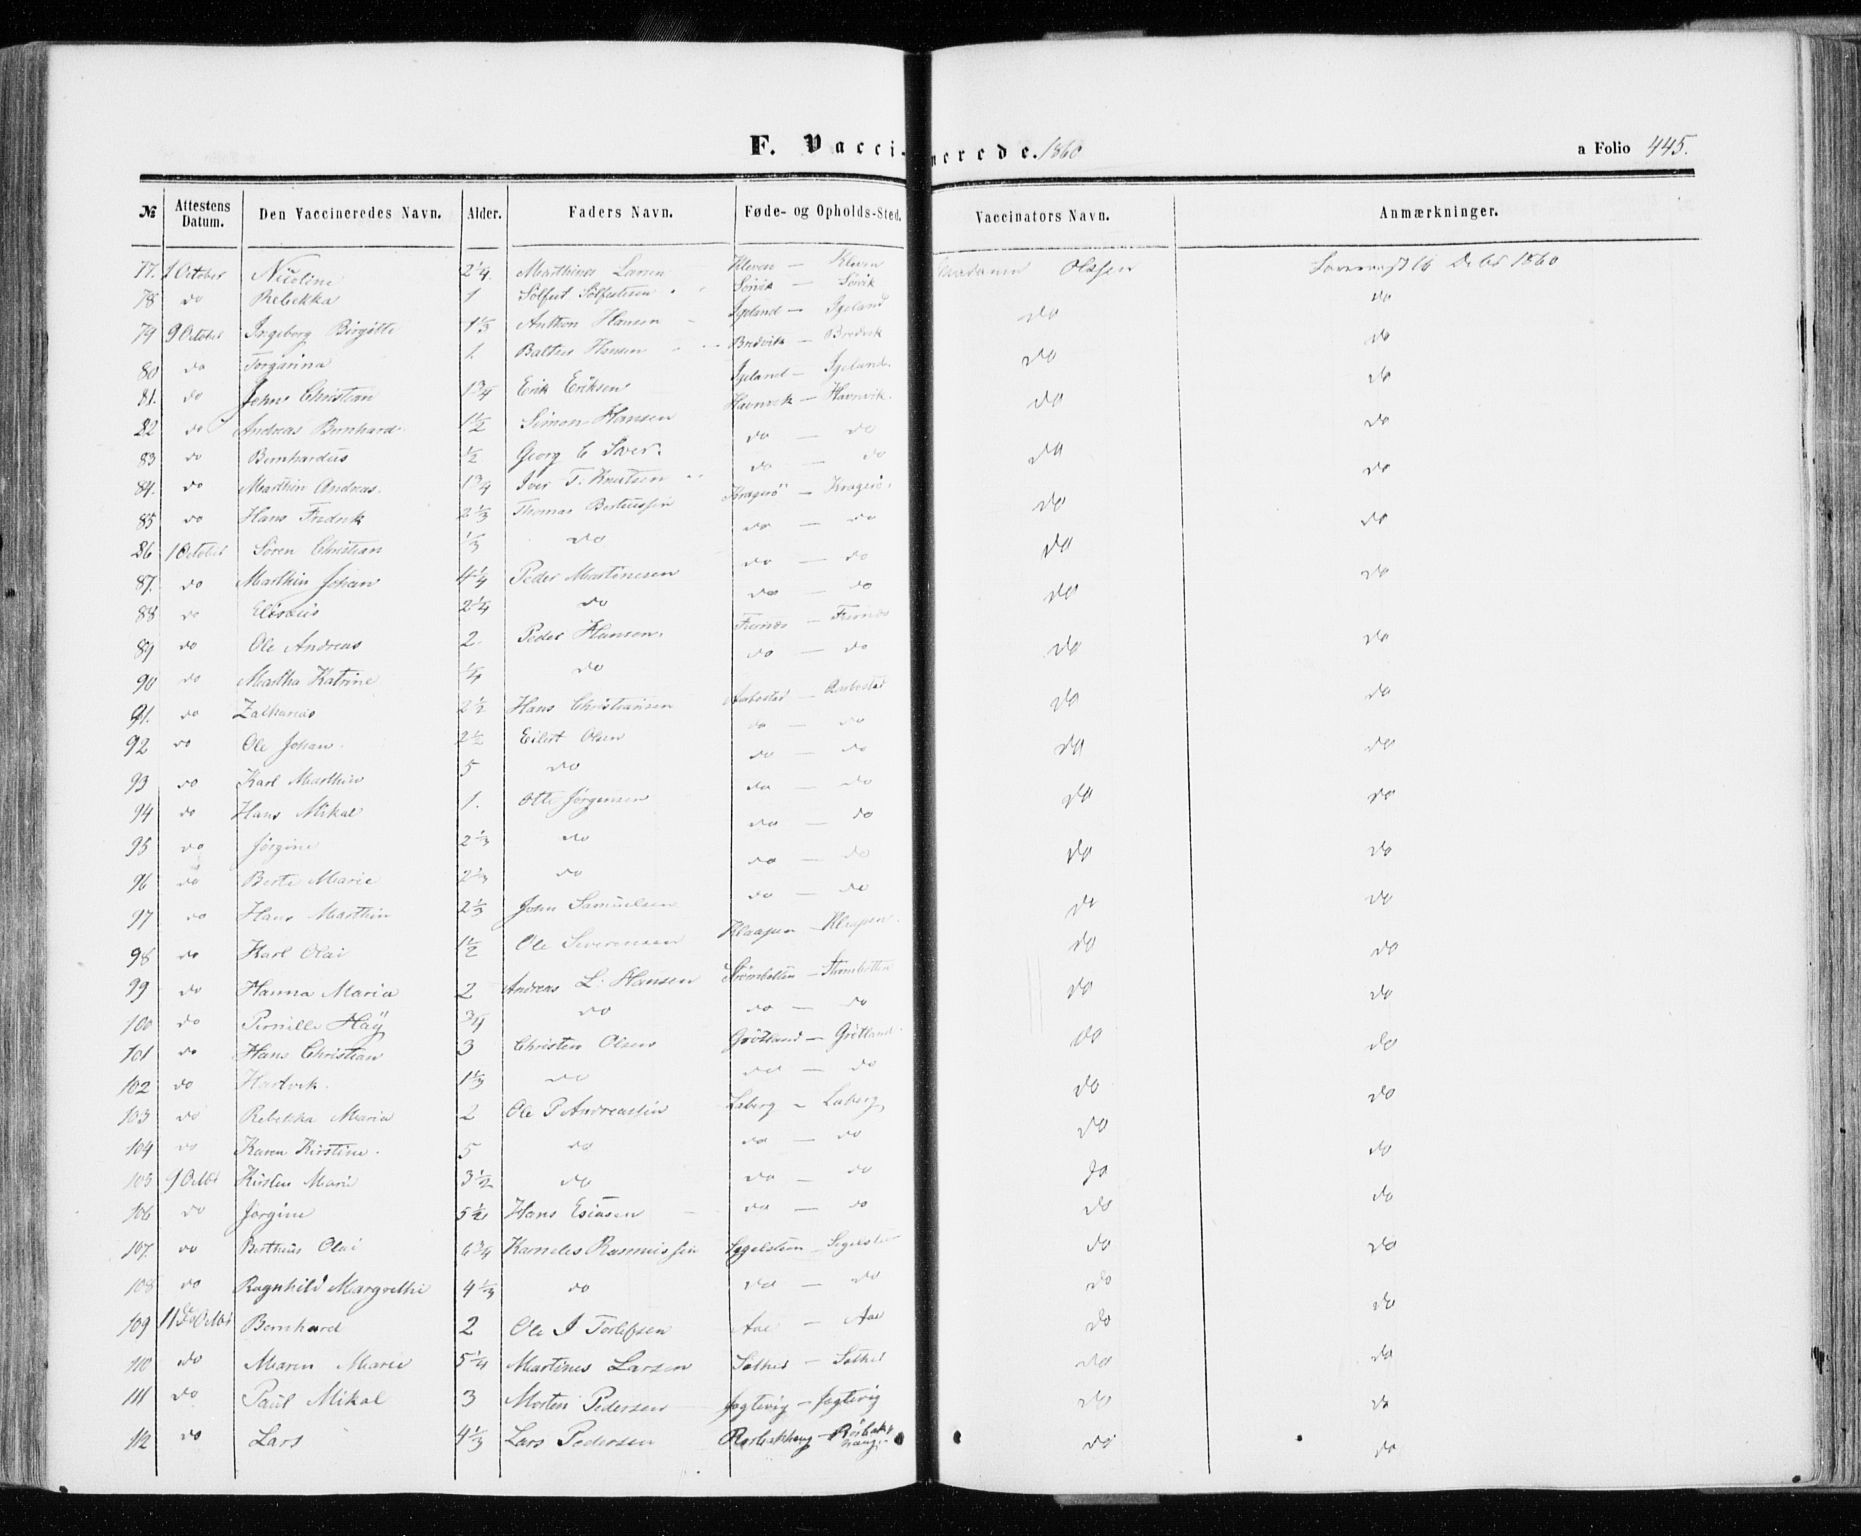 F. Vaccinerede. 1860 a Folio 445.
№ Attestens Datum. Den Vaccineredes Navn. Alder. Faders Navn. Føde- og Opholds-Sted. Vaccinators Navn. Anmærkninger.
77. 1 October Nicoline 2 1/4 Marthines Larsen Kleven — Kleven Madame Olsen 16 1860
78 do Rebekka 1 Sølfest Sølfestesen Sørvik — Sørvik do do
79 9 October Ingeborg Birgitte 1 1/3 Anthon Hansen Igeland — Igeland do do
80 do Torgarina 1 Baltser Hansen Bredvik — Bredvik do do
81. do John Christian 1 3/4 Erik Eriksen Igeland — Igeland do do
82 do Andreas Bernhard 1 1/2 Simon Hansen Havnvik — Havnvik. do do
83 do Bernhardus 1/2 Georg C do — do do do
84. do Marthin Andreas. 1 3/4 Iver T. Knutsen do — do do do
85 do Hans Fredrik 2 1/3 Thomas Berteussen Kragerö — Kragerö do do
86 1 October Sören Christian 1/3 do do — do do do
87. do Marthin Johan 4 1/4 Peder Martinesen do — do do do
88 do Eliseus 2 1/4 do do — do do do
89 do Ole Andreas 2 Peder Hansen. Furnæs — Furnæs do do
90 do Martha Katrine 1/4 do do — do do do
91. do Zakarias 2 1/2 Hans Christiansen Aabostad — Aabostad do do
92 do Ole Johan. 2 1/2 Eilert Olsen do — do do do
93 do Karl Marthin 5 do do — do do do
94 do Hans Mikal 1. Otte Jørgensen do — do do do
95 do Jørgine 2 1/3 do do — do do do
96 do Berte Marie 2 1/3 do do — do do do
97 do Hans Marthin 2 1/3 John Samuelsen do — do do do
98 do Karl Olai 1 1/2 Ole Severensen Klaapen — Klaapen. do do
99 do Hanna Maria 2 Andreas L: Hansen Strømbotten — Strømbotten do do
100 do Pernille Häÿ 3/4 do do — do do do
101 do Hans Christian 3 Christen Olsen Grötland — Grötland do do
102 do Hartvik. 1 1/3 do do — do do do
103 do Rebekka Maria 2 Ole P Andreassen Laberg — Laberg do do
104 do Karen Kirstine. 5 do do — do do do
105 9 Octbr Kirsten Marie 3 1/2 do do — do do do
106 do Jørgine 5 1/2 Hans Esiasen do — do do do
107. do Bertheus Olai 6 3/4 Karneles Rasmussen Segelsteen — Segelsteen do do
108 do Ragnhild Margrethe 4 1/3 do do — do do do
109 11 Octbr Bernhard 2 Ole I Torlefsen Aae — Aae do do
110 do Maren Marie 5 1/4 Martines Larsen Sølhei — Sølhei do do
111 do Paul Mikal 3 Morten Pedersen Jøgtevig — Jøgtevig do do
112 do Lars 4 1/3 Lars Pedersen do do